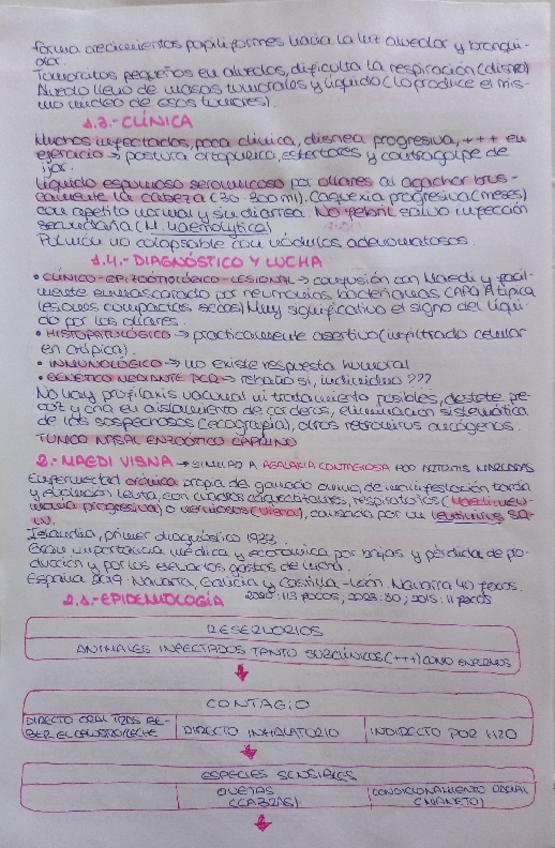 forma crecimientos papiliformes hacia la luz alveolar y bronqui-
olar.
Tumorcitos pequeños en alveolos, dificulta la respiración (disnea)
Alveolo lleno de masas tumorales y líquido (lo produce el mis-
mo núcleo de esos tumores).
1.3.- CLÍNICA
Muchos infectados, poca clínica, disnea progresiva, +++ en
ejercicio → postura ortopneica, estertores y contragolpe de
ijar.
Líquido espumoso seromucoso por ollares al agachar brus-
camente la cabeza (30-300 ml). Caquexia progresiva (meses)
con apetito normal y sin diarrea. No febril salvo infección
secundaria (M. haemolytica)
Pulmón no colapsable con nódulos adenomatosos.
1.4.- DIAGNÓSTICO Y LUCHA
• CLÍNICO-EPIZOOTIOLÓGICO-LESIONAL → confusión con Maedi y fácil-
mente enmascarado por neumonías bacterianas (APO Atípica
lesiones compactas secas) Muy significativo el signo del líqui-
do por los ollares.
• HISTOPATOLÓGICO → practicamente asertivo (infiltrado celular
en atípica).
• INMUNOLÓGICO → no existe respuesta humoral
• GENÉTICO MEDIANTE PCR → rebaño si, individuo ???
No hay profilaxis vacunal ni tratamiento posibles, destete pre-
coz y cría en aislamiento de corderos, eliminación sistemática
de los sospechosos (ecografía), otros retrovirus oncógenos.
TUMOR NASAL ENZOÓTICO CAPRINO
2.- MAEDI VISNA → SIMILAR A AGALAXIA CONTAGIOSA POR MAMITIS MARCADAS
Enfermedad crónica propia del ganado ovino, de manifestación tardía
y evolución lenta, con cuadros caquectizantes, respiratorios (Maedi: neu-
monía progresiva) o nerviosos (Visna), causada por un lentivirus
Islandia, primer diagnóstico 1933
Gran importancia médica y económica por bajas y pérdida de pro-
ducción y por los elevados gastos de
España 2019: Navarra, Galicia y Castilla-León. Navarra 40 focos.
2.1.- EPIDEMIOLOGÍA 2020: 113 FOCOS, 2023: 30, 2015: 11 FOCOS
RESERVORIOS
ANIMALES INFECTADOS TANTO SUBCLÍNICOS (+++) COMO ENFERMOS
CONTAGIO
DIRECTO ORAL TRAS BE- DIRECTO INHALATORIO INDIRECTO POR H2O
BER EL CALOSTRO/LECHE
ESPECIES SENSIBLES
OVEJAS CONDICIONAMIENTO RACIAL
(CABRAS) (MANEJO)